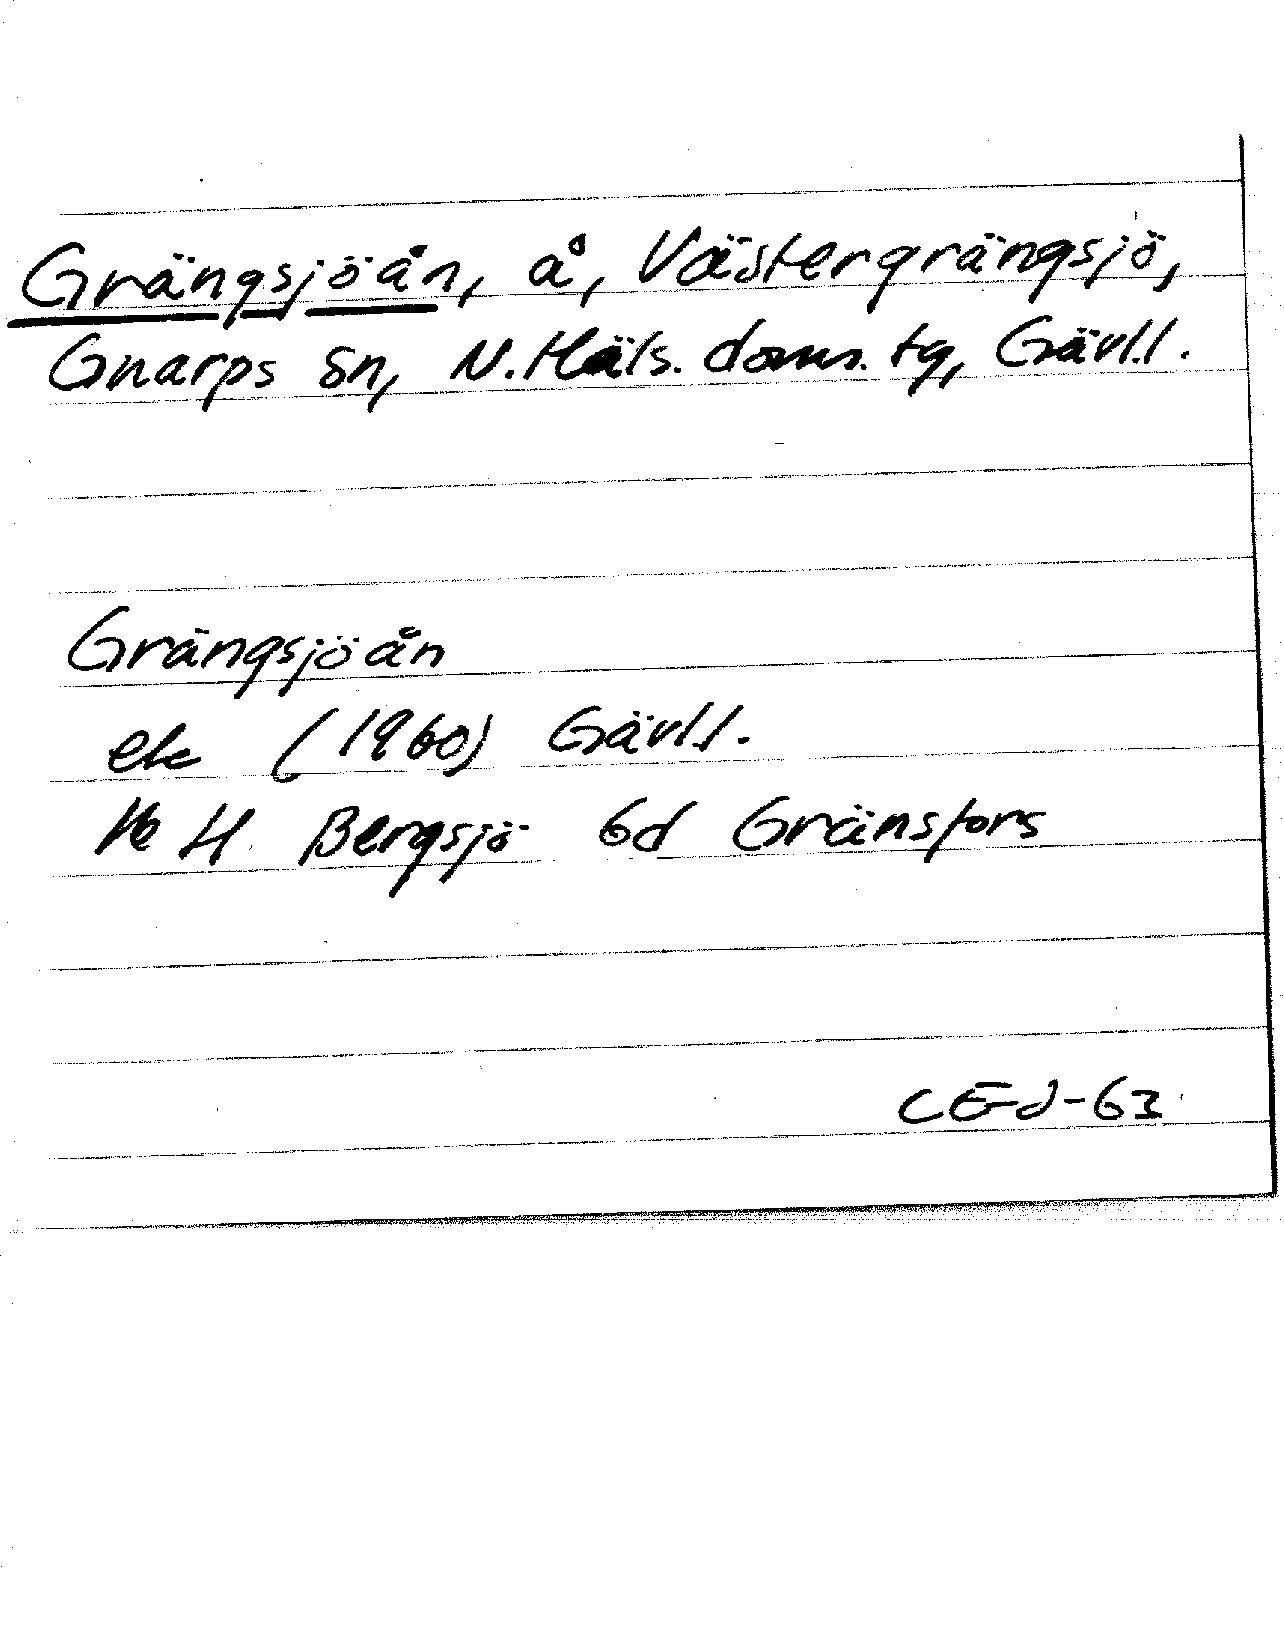 Grängsjöån, å, Västergrängsjö,
Gnarps sn, N. Häls. doms. tg, Gävl.l.
Grängsjöån
ek (1960) Gävl.l.
16 H Bergsjö 6d Gränsfors
CEJ-63